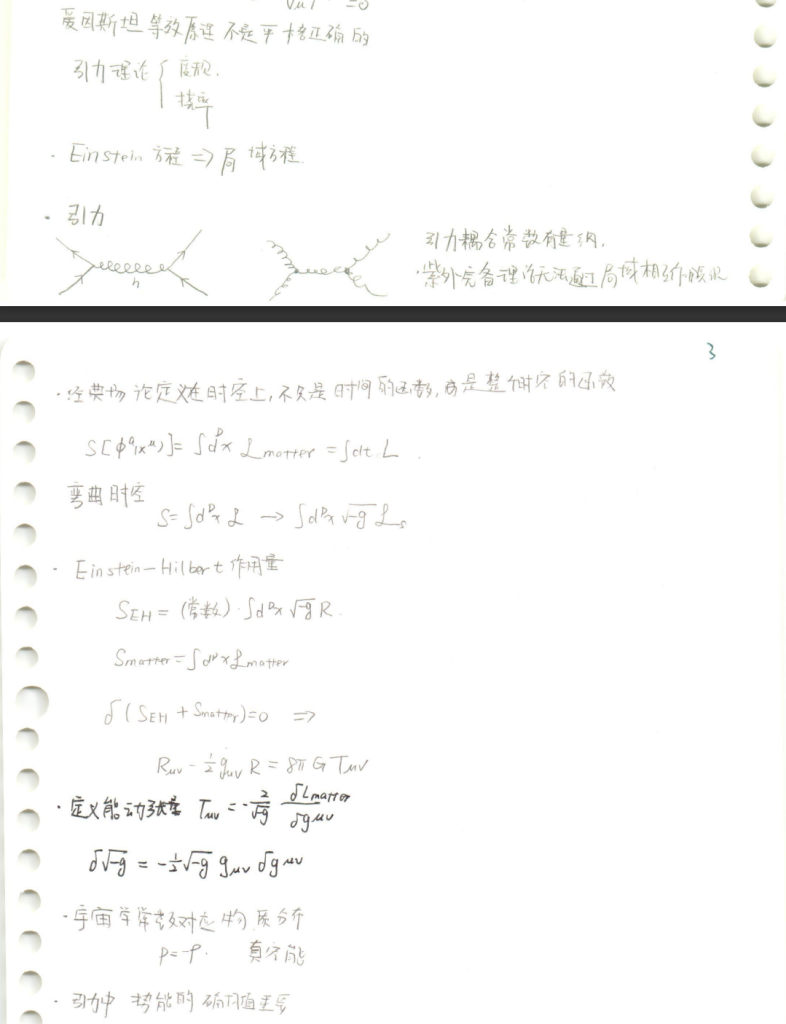 爱因斯坦等效原理 不是严格正确的
引力理论 { 度规.
挠率
· Einstein 方程 ⇒ 局域方程.
· 引力
h
引力耦合常数有量纲.
· 紫外完备理论无法通过局域相互作用
3
· 经典场论定义在时空上, 不只是时间的函数, 而是整个时空的函数
S[φᵃ(xᵘ)] = ∫dᴰx ℒmatter = ∫dt L .
弯曲时空
S = ∫dᴰx ℒ → ∫dᴰx √-g ℒs
· Einstein-Hilbert 作用量
SEH = (常数) · ∫dᴰx √-g R.
Smatter = ∫dᴰx ℒmatter
δ(SEH + Smatter) = 0 ⇒
Rμν - ½ gμν R = 8πG Tμν
· 定义能动张量 Tμν = - 2/√-g δLmatter/δgᵘᵛ
δ√-g = -½ √-g gμν δgᵘᵛ
· 宇宙学常数对应物质分布
p = -ρ. 真空能
· 引力中 势能的 确切值重要